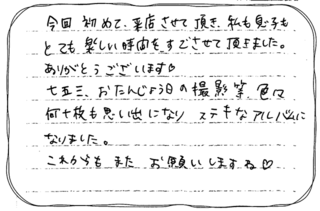 今回 初めて、来店させて頂き、私も息子も
とても楽しい時間をすごさせて頂きました。
ありがとうございます♡
七五三、おたんじょう日の撮影等、色々
何十枚も思い出になり ステキなアルバムに
なりました。
これからも また お願いしますね♡